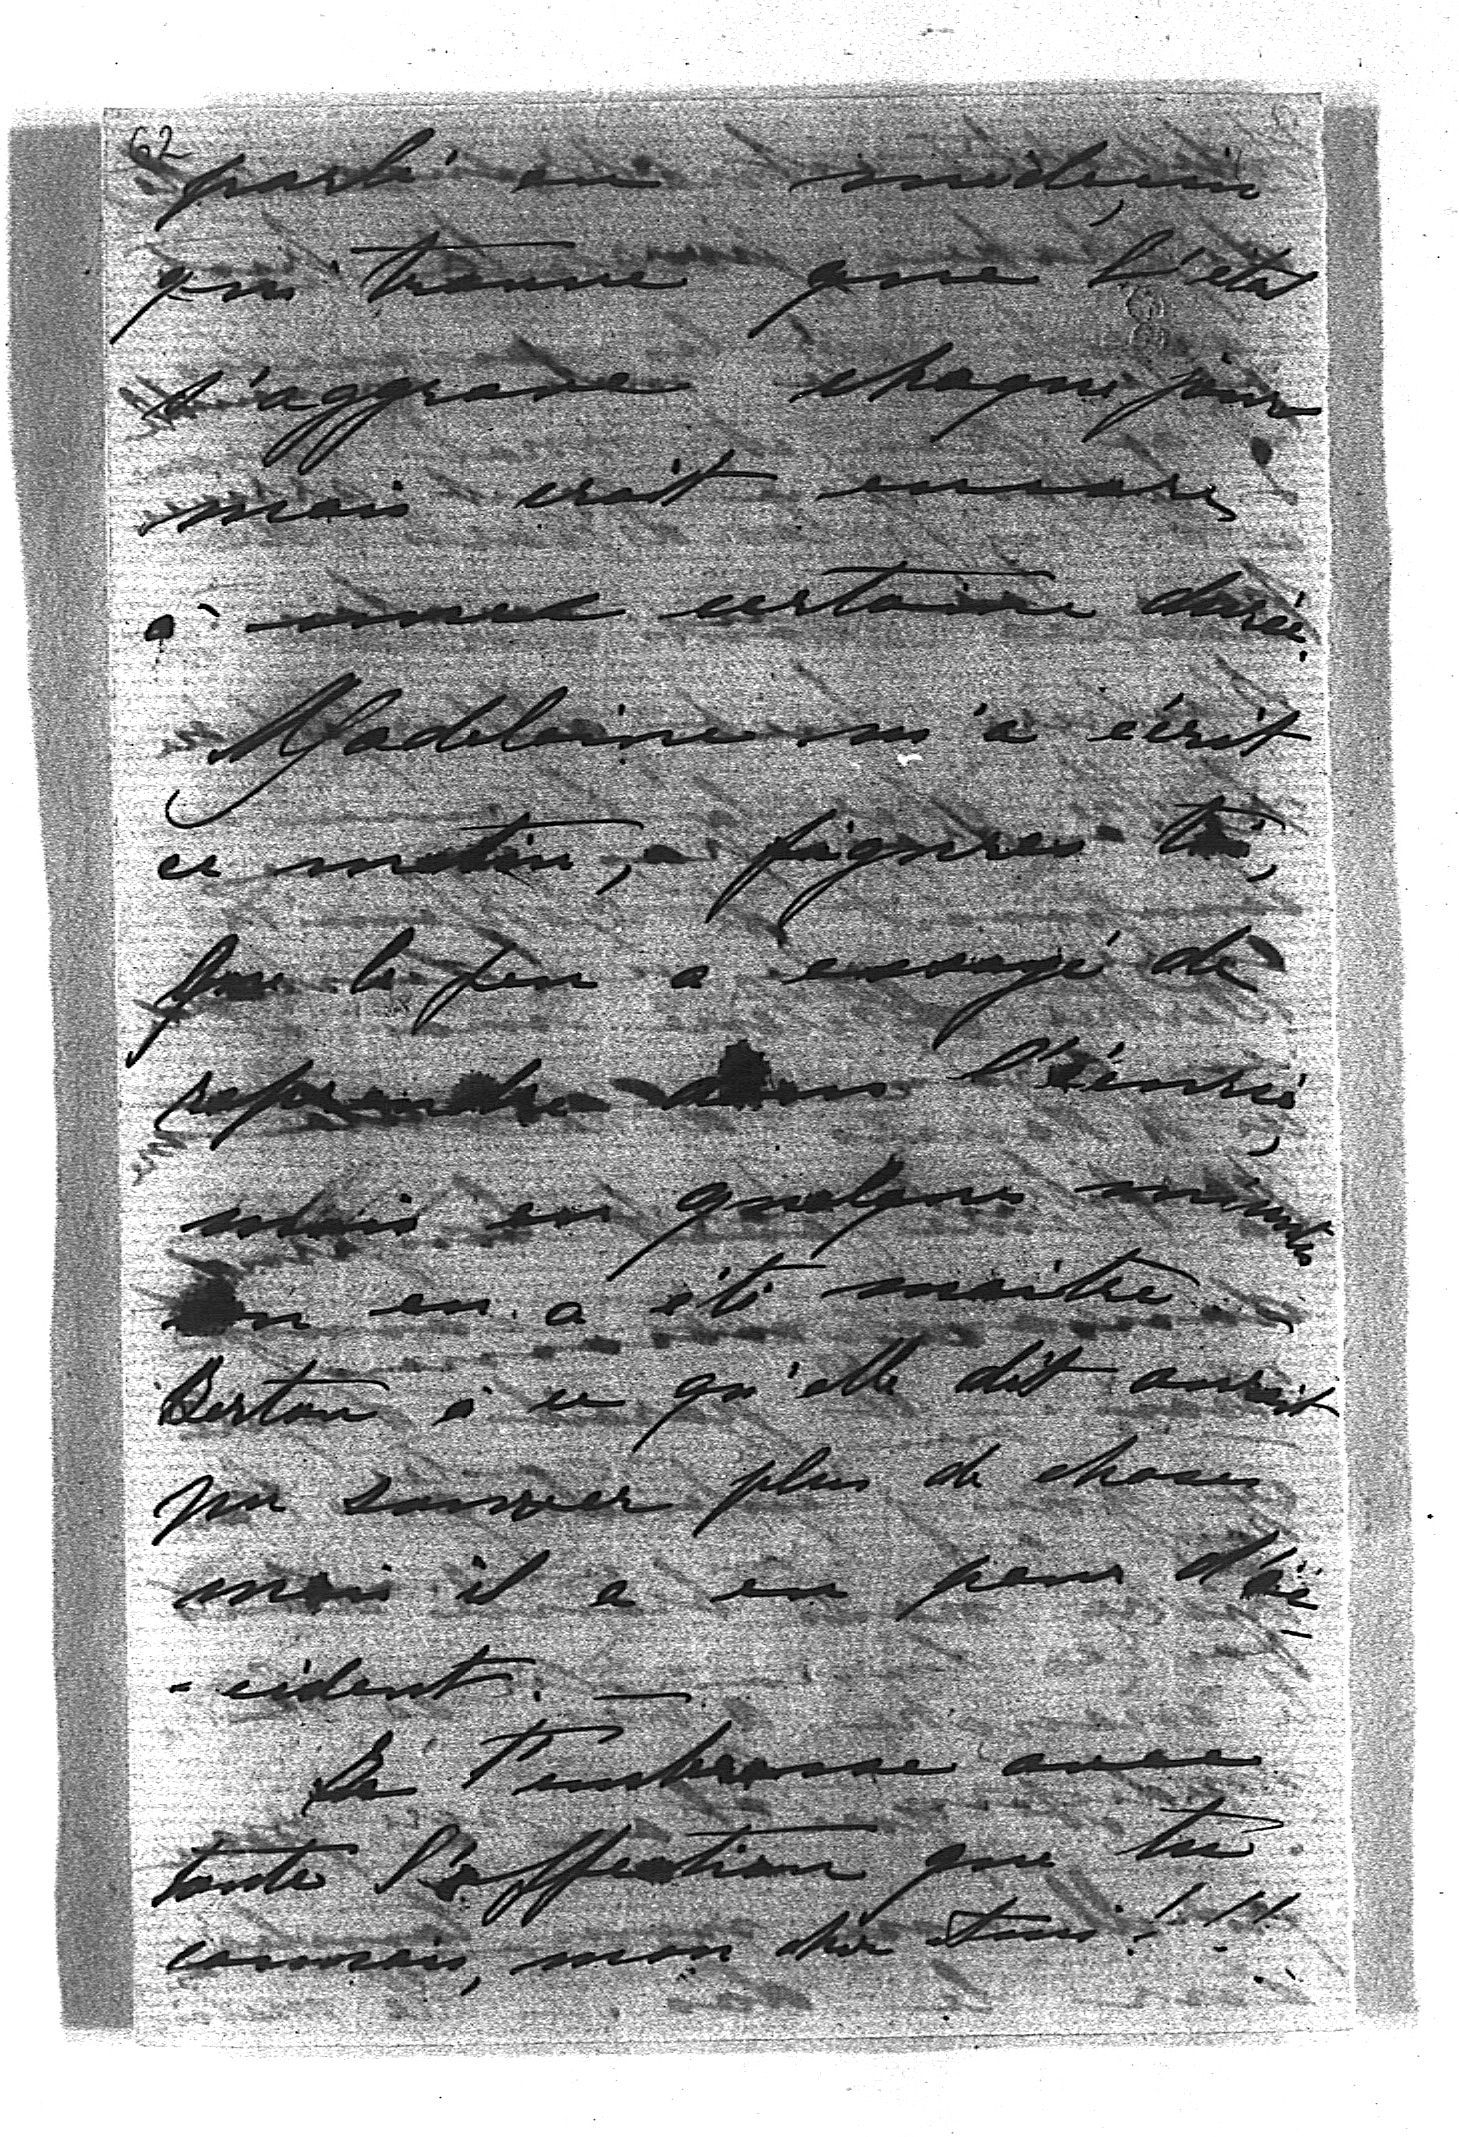 62
parlé au médecin,
qui trouve que l'état
s'aggrave chaque jour
mais croit encore
à une certaine durée.
Madeleine m'a écrit
ce matin, figures toi,
que le feu a essayé de
reprendre dans l'
mais en quelques minutes
on en a été maître.
Berton à ce qu'elle dit aurait
pu sauver plus de choses
mais il a eu peur d'ac-
-cident. —
Je t'embrasse avec
toute l'affection que tu
connais, mon cher !!!